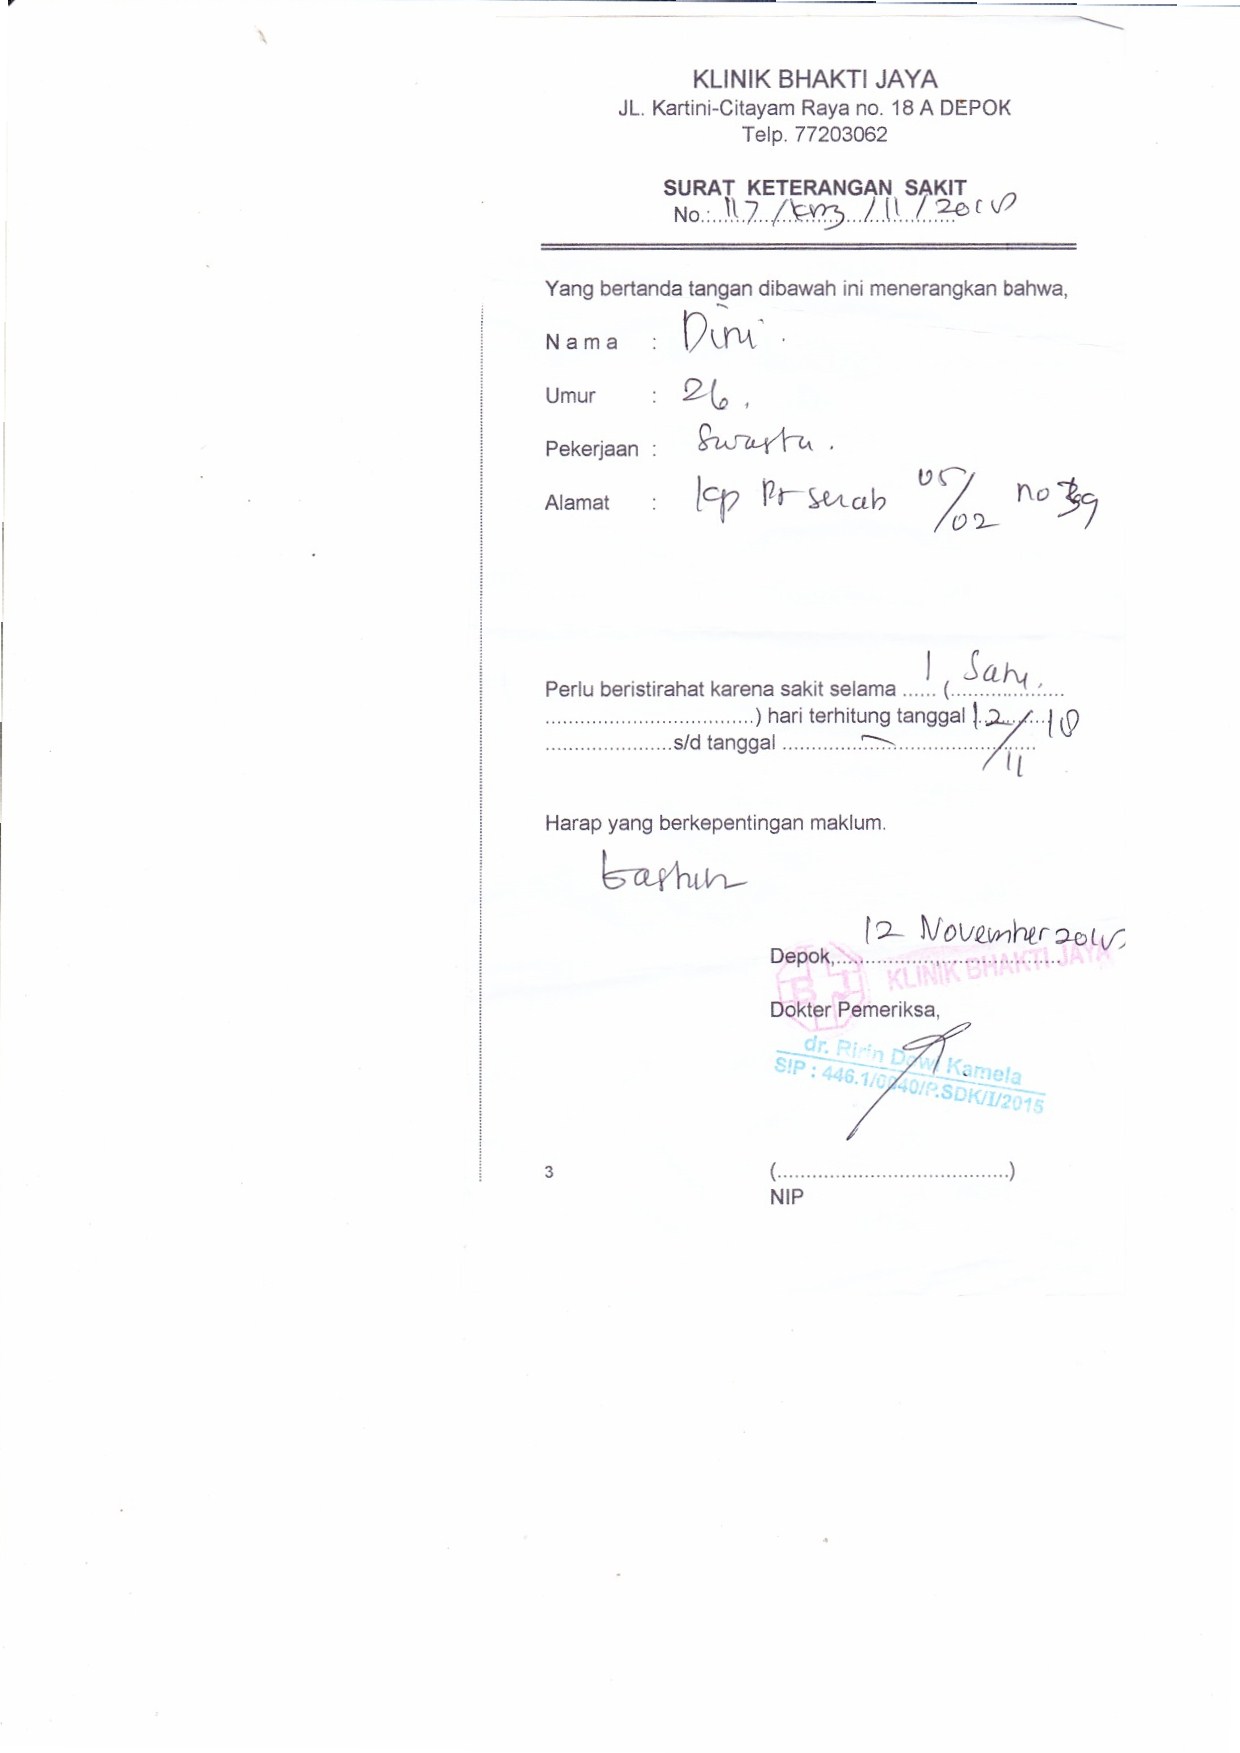 KLINIK BHAKTI JAYA
JL. Kartini-Citayam Raya no. 18 A DEPOK
Telp. 77203062
SURAT KETERANGAN SAKIT
No.: 117 / / 11 / 2018
Yang bertanda tangan dibawah ini menerangkan bahwa,
N a m a : Dini
Umur : 26
Pekerjaan : Swasta
Alamat : kp Pt serab 05/02 no 39
Perlu beristirahat karena sakit selama 1 (Satu
) hari terhitung tanggal 12/11 18
s/d tanggal —
Harap yang berkepentingan maklum.
12 November 2018
Depok,
KLINIK BHAKTI JAYA
BJ
Dokter Pemeriksa,
dr. Ririn Dewi Kamela
SIP : 446.1/0040/P.SDK/I/2015
3 (......................................)
NIP